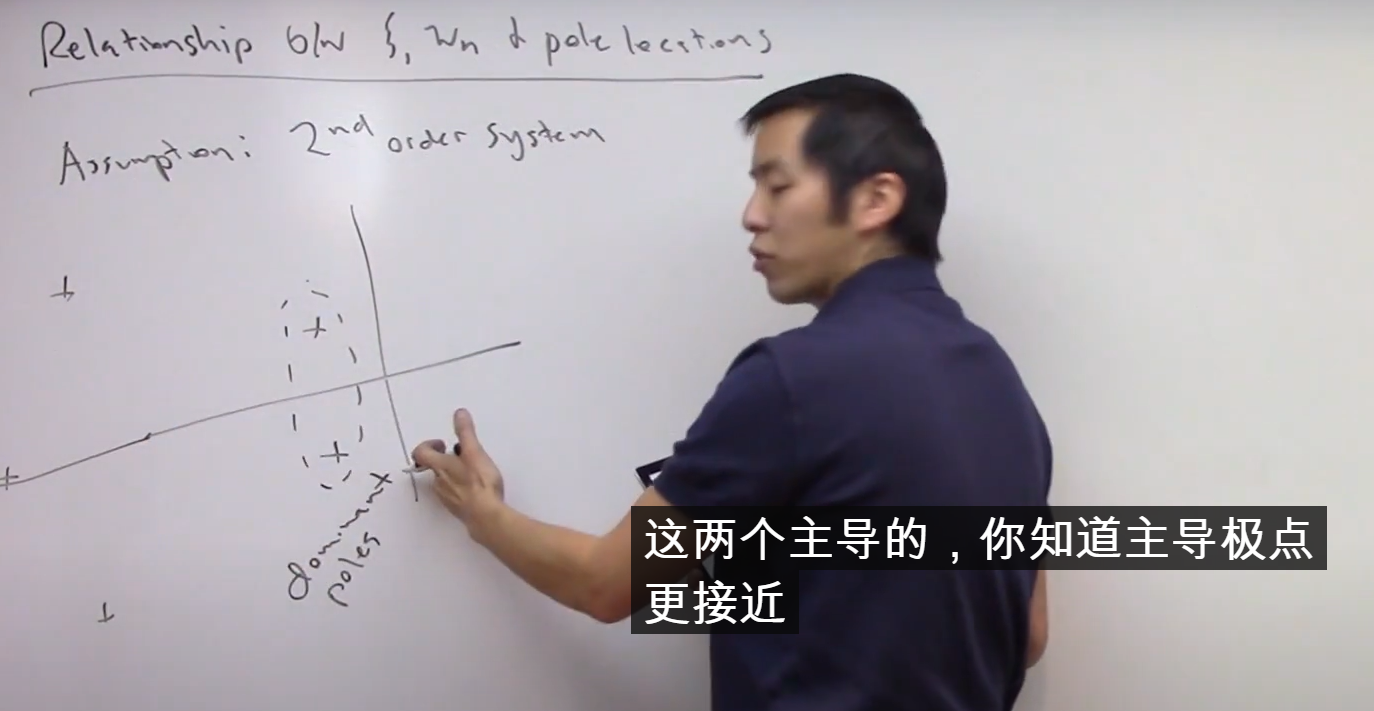 Relationship b/w ξ, wn & pole locations
Assumption: 2nd order system
dominant
poles
这两个主导的，你知道主导极点
更接近